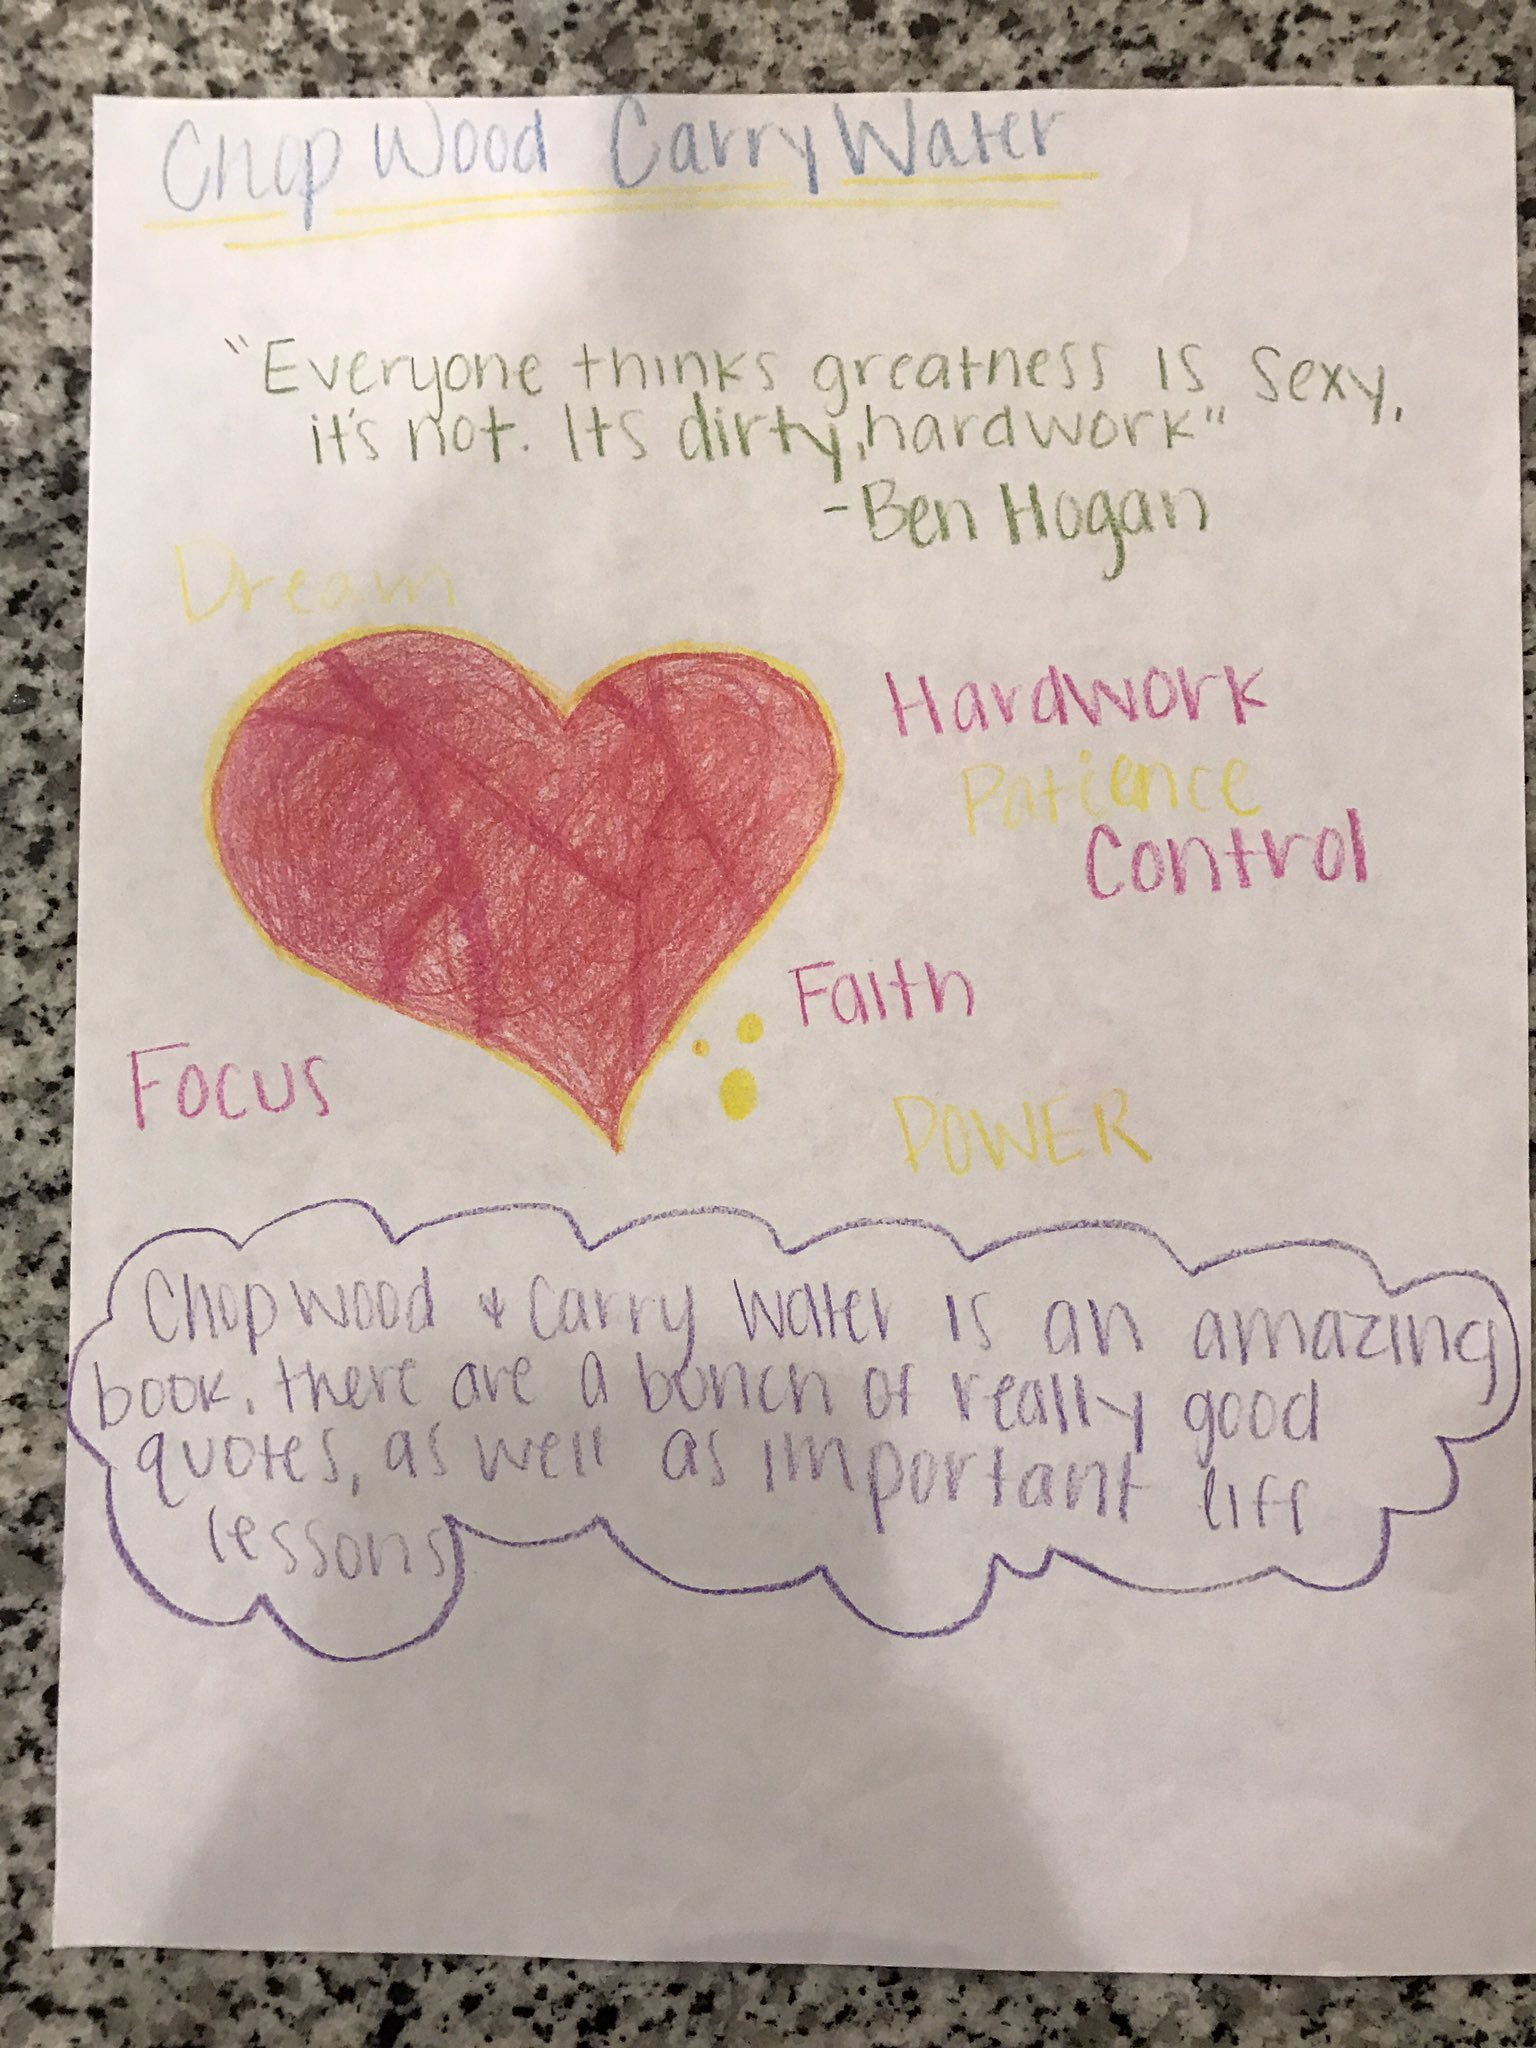 Chop Wood Carry Water
"Everyone thinks greatness is sexy,
it's not. Its dirty, hardwork"
-Ben Hogan
Dream
Hardwork
Patience
Control
Faith
Focus
POWER
Chop wood & Carry Water is an amazing
book. there are a bunch of really good
quotes, as well as important life
lessons